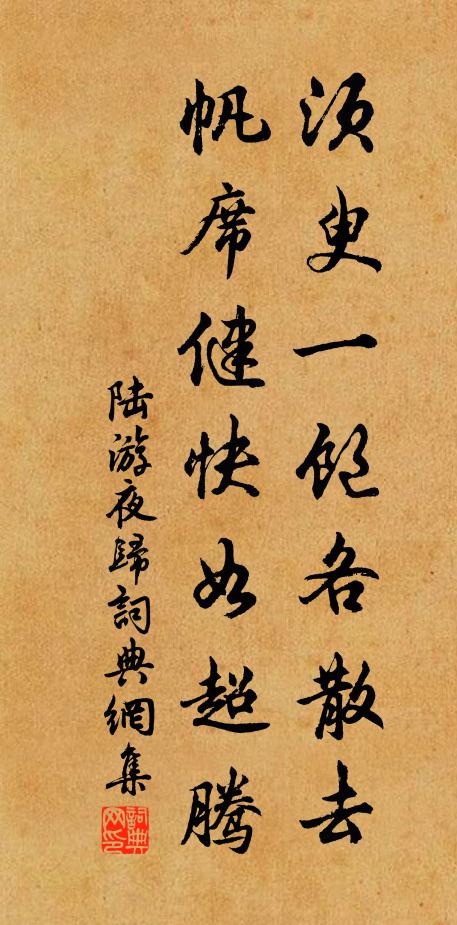 須臾一飽各散去
帆席健快如超騰
陸游夜歸詞典網集
詞典网印